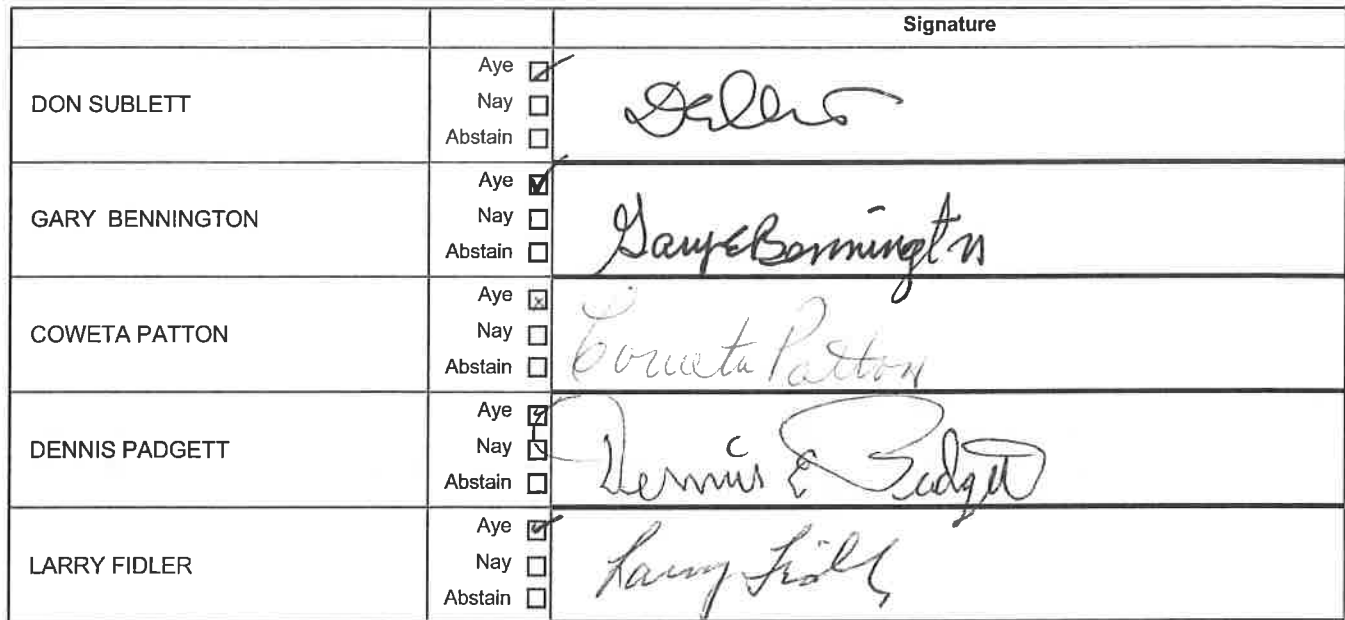 Signature
DON SUBLETT
Aye
Nay
Abstain
GARY BENNINGTON
Aye
Nay
Abstain
Gary E Bennington
COWETA PATTON
Aye
Nay
Abstain
Coweta Patton
DENNIS PADGETT
Aye
Nay
Abstain
Dennis E Padgett
LARRY FIDLER
Aye
Nay
Abstain
Larry Fidler